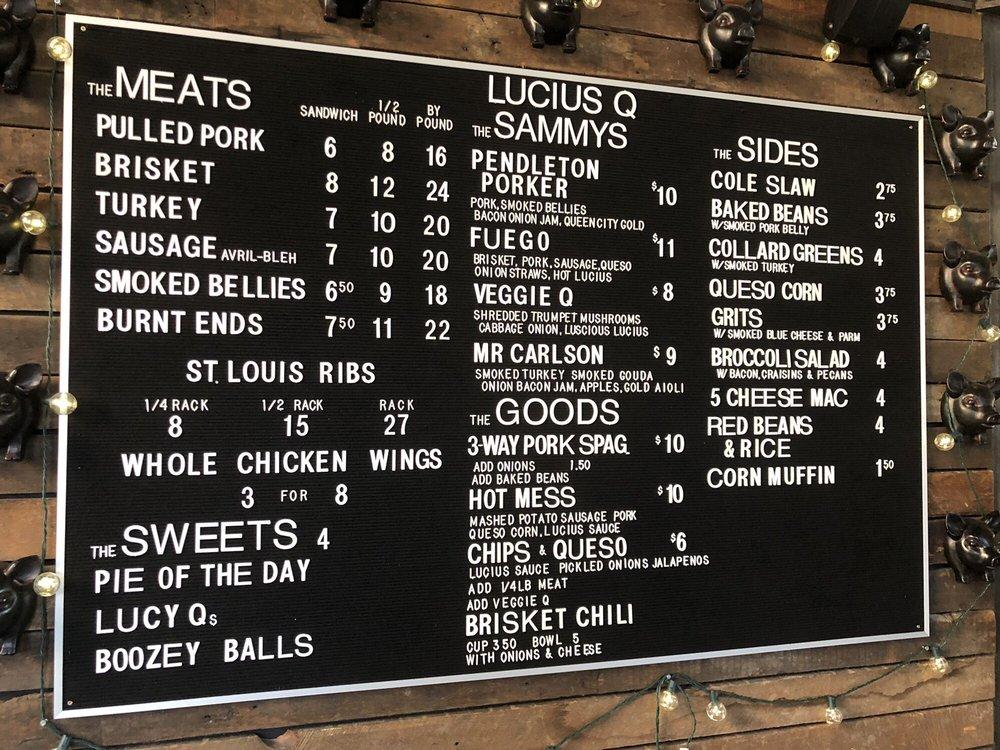 THE MEATS
SANDWICH 1/2 POUND BY POUND
PULLED PORK 6 8 16
BRISKET 8 12 24
TURKEY 7 10 20
SAUSAGE AVRIL-BLEH 7 10 20
SMOKED BELLIES 6 50 9 18
BURNT ENDS 7 50 11 22
ST. LOUIS RIBS
1/4 RACK 1/2 RACK RACK
8 15 27
WHOLE CHICKEN WINGS
3 FOR 8
THE SWEETS 4
PIE OF THE DAY
LUCY Qs
BOOZEY BALLS
LUCIUS Q
THE SAMMYS
PENDLETON
PORKER $10
PORK, SMOKED BELLIES
BACON ONION JAM, QUEEN CITY GOLD
FUEGO $11
BRISKET, PORK, SAUSAGE, QUESO
ONION STRAWS, HOT LUCIUS
VEGGIE Q $8
SHREDDED TRUMPET MUSHROOMS
CABBAGE ONION, LUSCIOUS LUCIUS
MR CARLSON $9
SMOKED TURKEY SMOKED GOUDA
ONION BACON JAM, APPLES, GOLD AIOLI
THE GOODS
3-WAY PORK SPAG. $10
ADD ONIONS 1.50
ADD BAKED BEANS
HOT MESS $10
MASHED POTATO SAUSAGE PORK
QUESO CORN, LUCIUS SAUCE
CHIPS & QUESO $6
LUCIUS SAUCE PICKLED ONIONS JALAPENOS
ADD 1/4LB MEAT
ADD VEGGIE Q
BRISKET CHILI
CUP 3 50 BOWL 5
WITH ONIONS & CHEESE
THE SIDES
COLE SLAW 2 75
BAKED BEANS 3 75
W/SMOKED PORK BELLY
COLLARD GREENS 4
W/SMOKED TURKEY
QUESO CORN 3 75
GRITS 3 75
W/ SMOKED BLUE CHEESE & PARM
BROCCOLI SALAD 4
W/ BACON, CRAISINS & PECANS
5 CHEESE MAC 4
RED BEANS 4
& RICE
CORN MUFFIN 1 50